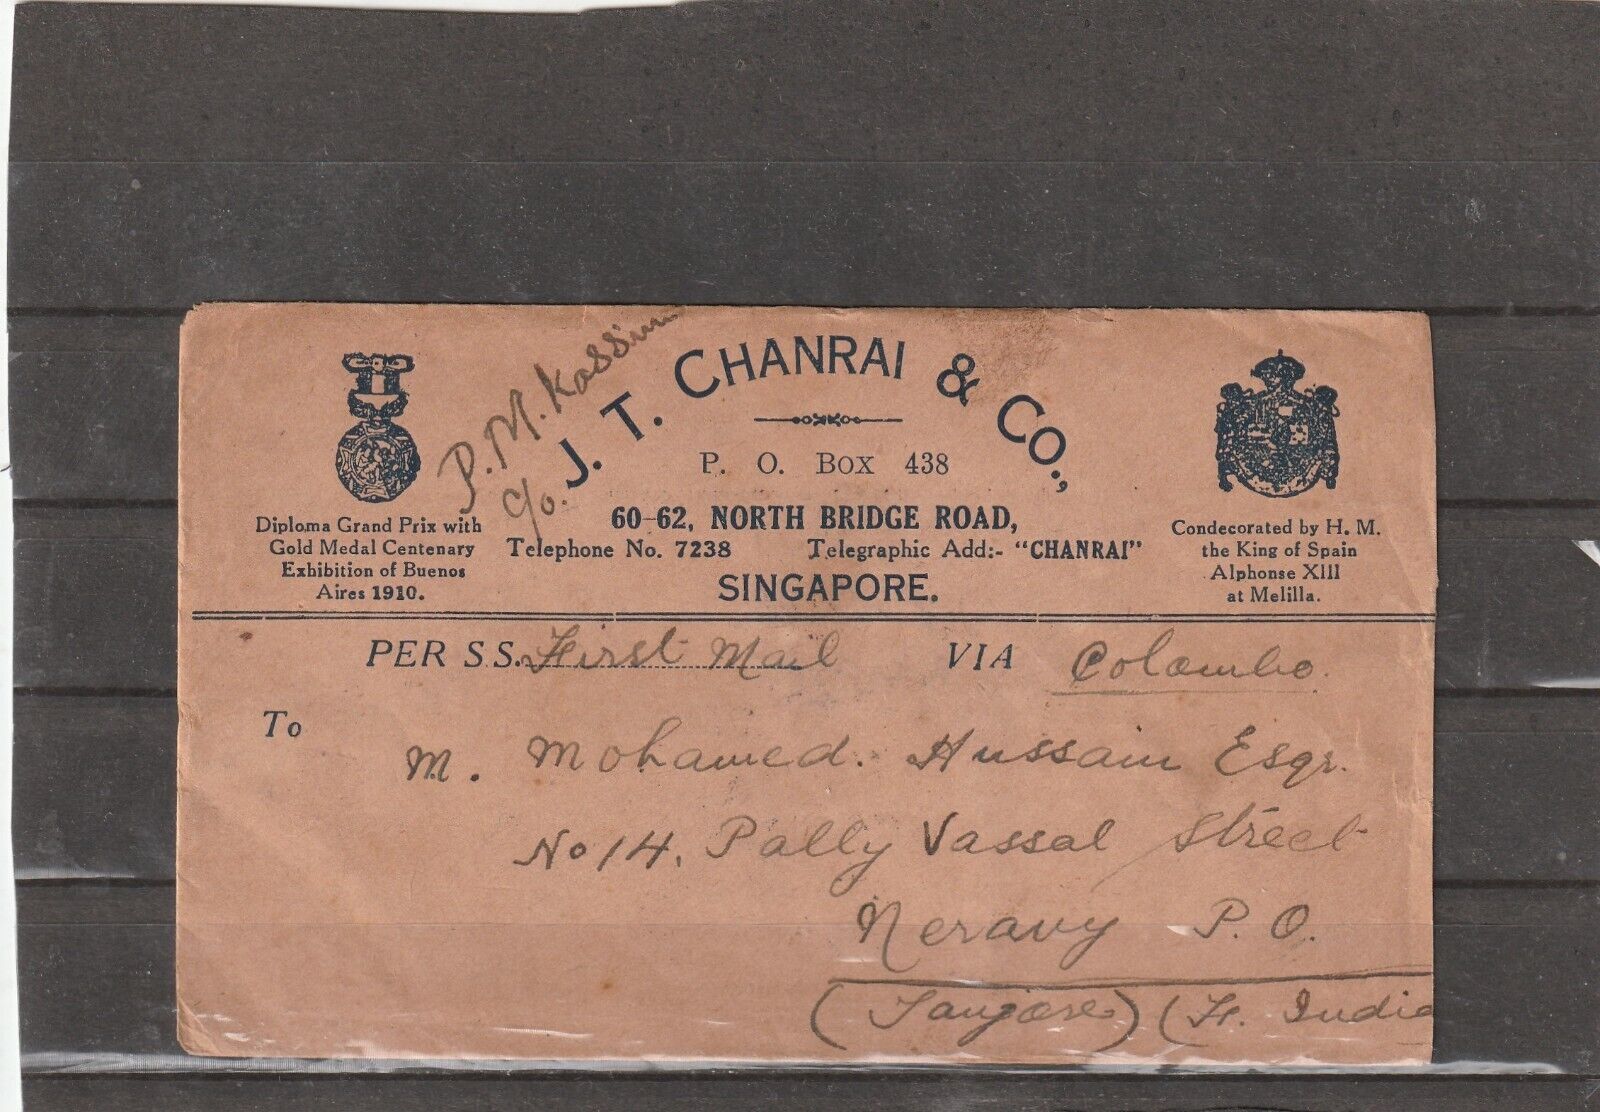 P. M. Kassim
c/o. J. T. CHANRAI & CO.,
P. O. BOX 438
60-62, NORTH BRIDGE ROAD,
Telephone No. 7238 Telegraphic Add:- "CHANRAI"
SINGAPORE.
Diploma Grand Prix with
Gold Medal Centenary
Exhibition of Buenos
Aires 1910.
Condecorated by H. M.
the King of Spain
Alphonse XIII
at Melilla.
PER S.S. First Mail VIA Colombo.
To
M. Mohamed. Hussain Esqr.
No 14, Pally Vassal Street
Neravy P.O.
(Tanjore) (Fr. India